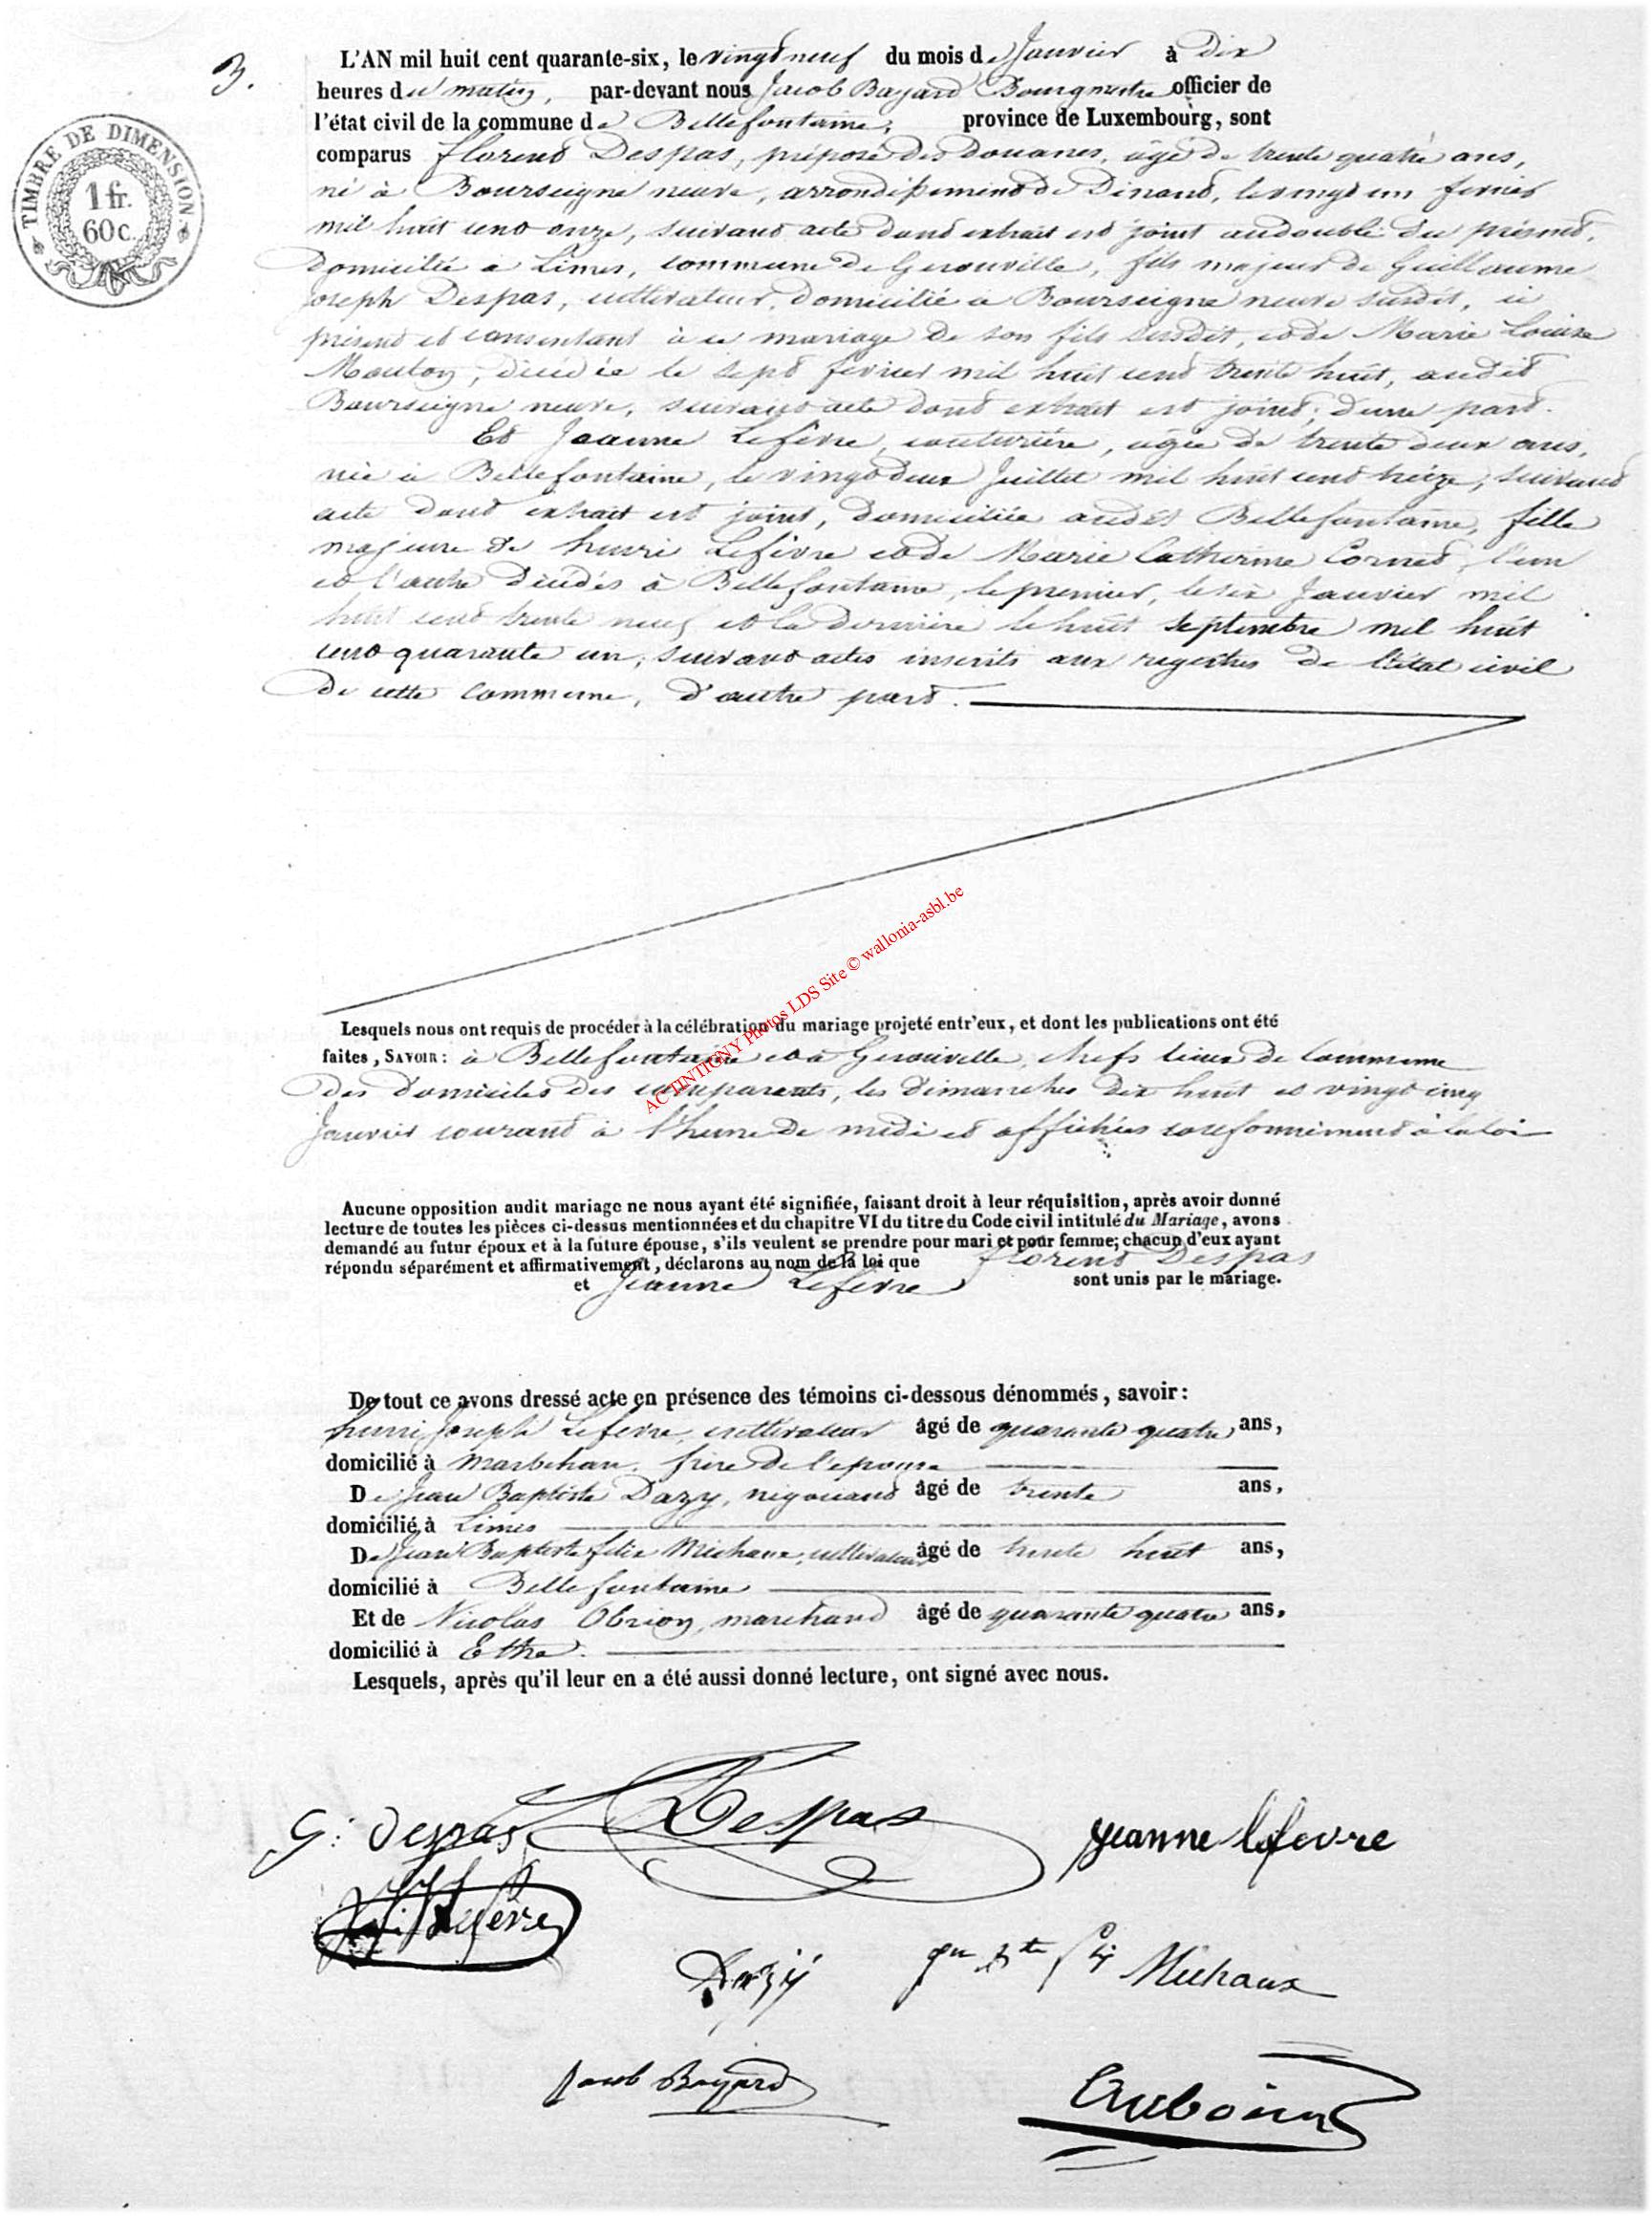 3.
L'AN mil huit cent quarante-six, le vingt neuf du mois de Janvier à dix
heures du matin, par-devant nous Jacob Bayard Bourgmestre officier de
l'état civil de la commune de Bellefontaine, province de Luxembourg, sont
comparus florent Despas, préposé des douanes, âgé de trente quatre ans,
né à Bourseigne neuve, arrondissement de Dinant, le vingt un fevrier
mil huit cent onze, suivant acte dont extrait est joint au double du présent,
domicilié à Limes, commune de Gerouville, fils majeur de Guillaume
Joseph Despas, cultivateur, domicilié à Bourseigne neuve susdit, ici
présent et consentant à ce mariage de son fils susdit, et de Marie Louise
Mouton, décédée le sept fevrier mil huit cent trente huit, audit
Bourseigne neuve, suivant acte dont extrait est joint; d'une part.
Et Jeanne Lefèvre, couturière, âgée de trente deux ans,
née à Bellefontaine, le vingt deux Juillet mil huit cent treize, suivant
acte dont extrait est joint, domiciliée audit Bellefontaine, fille
majeure de henri Lefèvre et de Marie Catherine Cornet, l'un
et l'autre décédés à Bellefontaine, le premier, le six Janvier mil
huit cent trente neuf et la dernière le huit septembre mil huit
cent quarante un, suivant actes inscrits aux registres de l'état civil
de cette commune, d'autre part.
TIMBRE DE DIMENSION.
1 fr.
60 c.
AC TINTIGNY Photos LDS Site © wallonia-asbl.be
Lesquels nous ont requis de procéder à la célébration du mariage projeté entr'eux, et dont les publications ont été
faites, SAVOIR: à Bellefontaine et à Gerouville, chefs lieux de commune
des domiciles des comparants, les dimanches dix huit et vingt cinq
Janvier courant à l'heure de midi et affichées conformément à la loi
Aucune opposition audit mariage ne nous ayant été signifiée, faisant droit à leur réquisition, après avoir donné
lecture de toutes les pièces ci-dessus mentionnées et du chapitre VI du titre du Code civil intitulé du Mariage, avons
demandé au futur époux et à la future épouse, s'ils veulent se prendre pour mari et pour femme; chacun d'eux ayant
répondu séparément et affirmativement, déclarons au nom de la loi que florent Despas
et Jeanne Lefevre sont unis par le mariage.
De tout ce avons dressé acte en présence des témoins ci-dessous dénommés, savoir:
henri Joseph Lefevre, cultivateur âgé de quarante quatre ans,
domicilié à Marbehan, frère de l'epouse
De Jean Baptiste Dazy, négociant âgé de trente ans,
domicilié à Limes
De Jean Baptiste felix Michaux, cultivateur âgé de trente huit ans,
domicilié à Bellefontaine
Et de Nicolas Obrion, marchand âgé de quarante quatre ans,
domicilié à Ethe.
Lesquels, après qu'il leur en a été aussi donné lecture, ont signé avec nous.
G: despas Despas Jeanne lefevre
Lefèvre
Dazÿ Jn Bte Michaux
Jacob Bayard